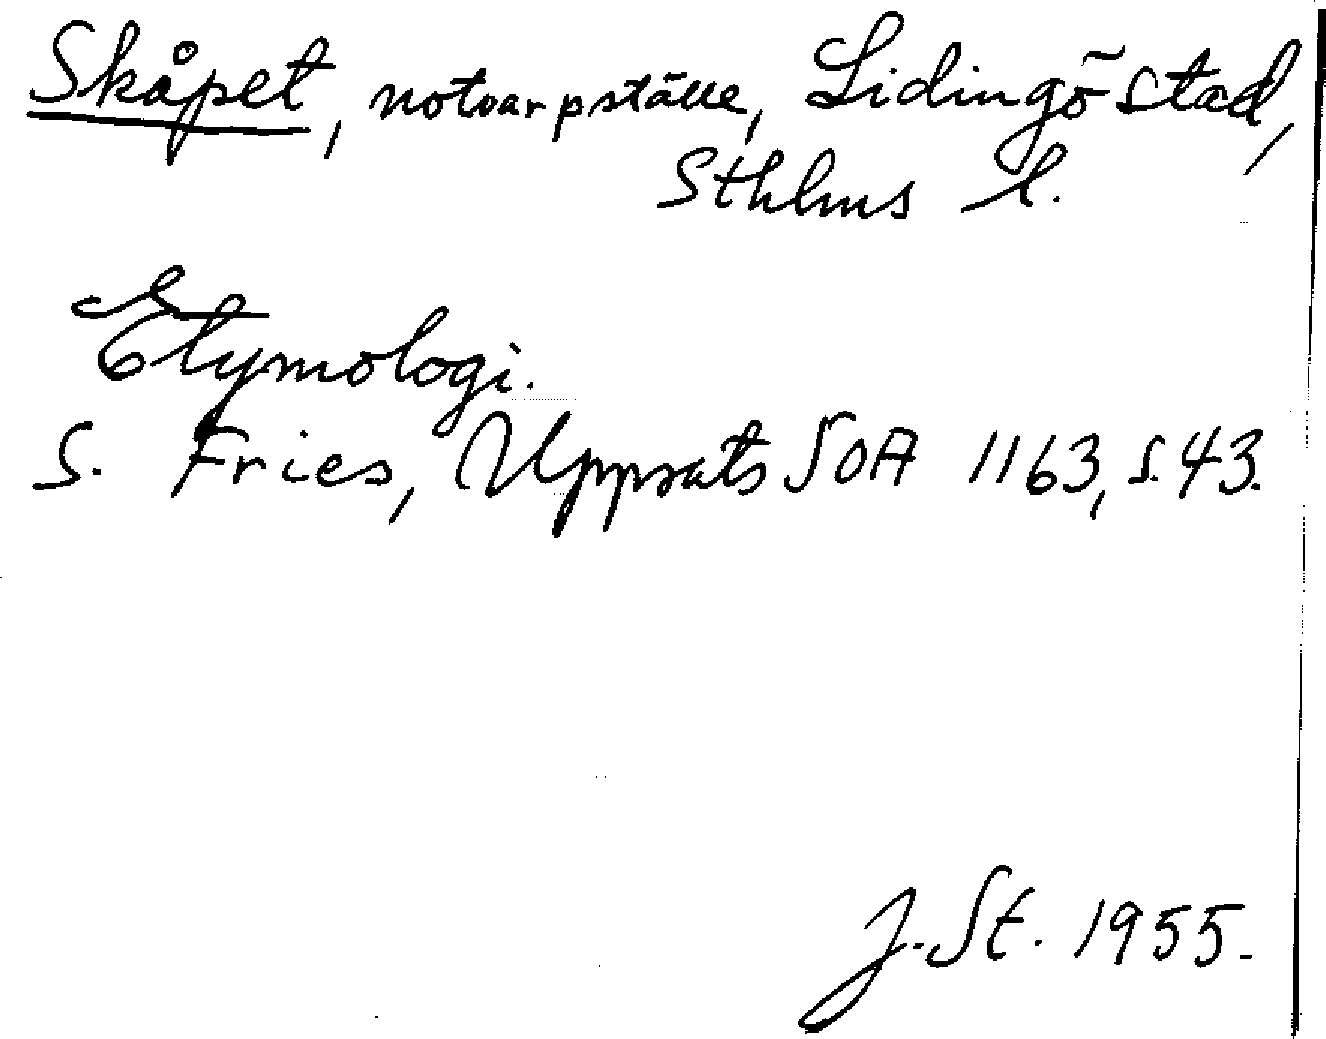 Skåpet, notvarpställe, Lidingö stad,
Sthlms l.
Etymologi.
S. Fries, Uppsats SOA 1163, s. 43.
J. St. 1955.